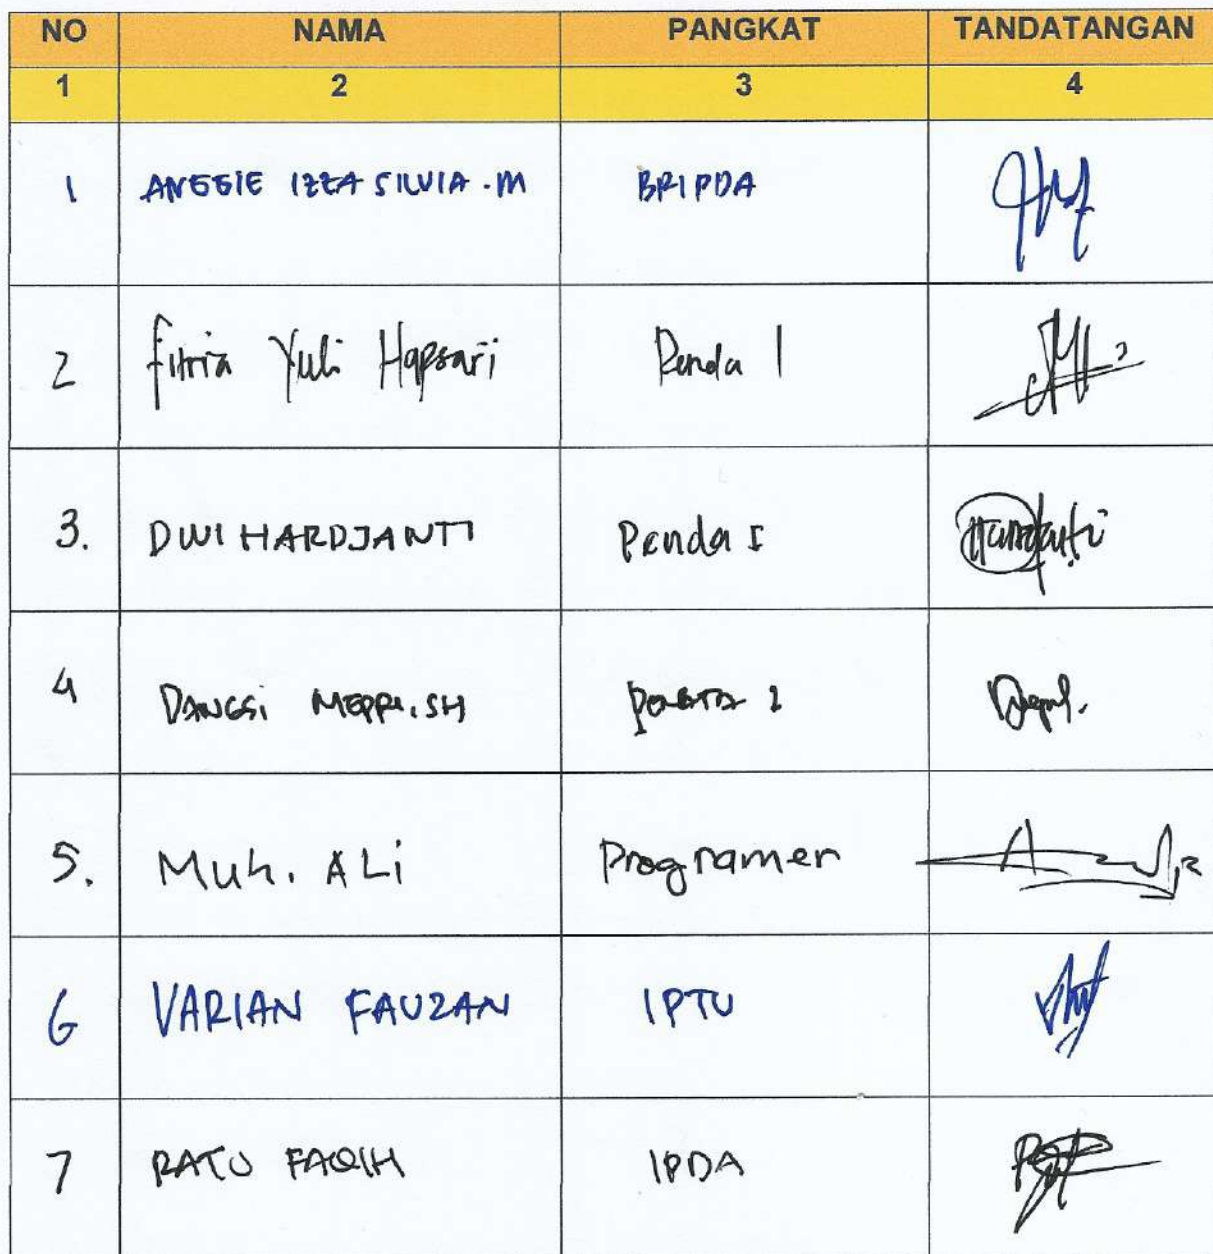 NO NAMA PANGKAT TANDATANGAN
1 2 3 4
1 ANGGIE IZZA SILVIA .M BRIPDA
2 Fitria Yuli Hapsari Penda 1
3. DWI HARDJANTI Penda I
4 DANGSI MEPPI.SH 
5. Muh. ALi Programer
6 VARIAN FAUZAN IPTU
7 RATU FAQIH IPDA